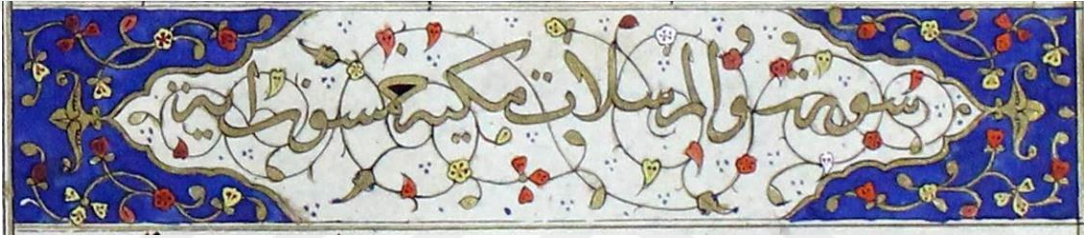 سورة والمرسلات مكية خمسون اية